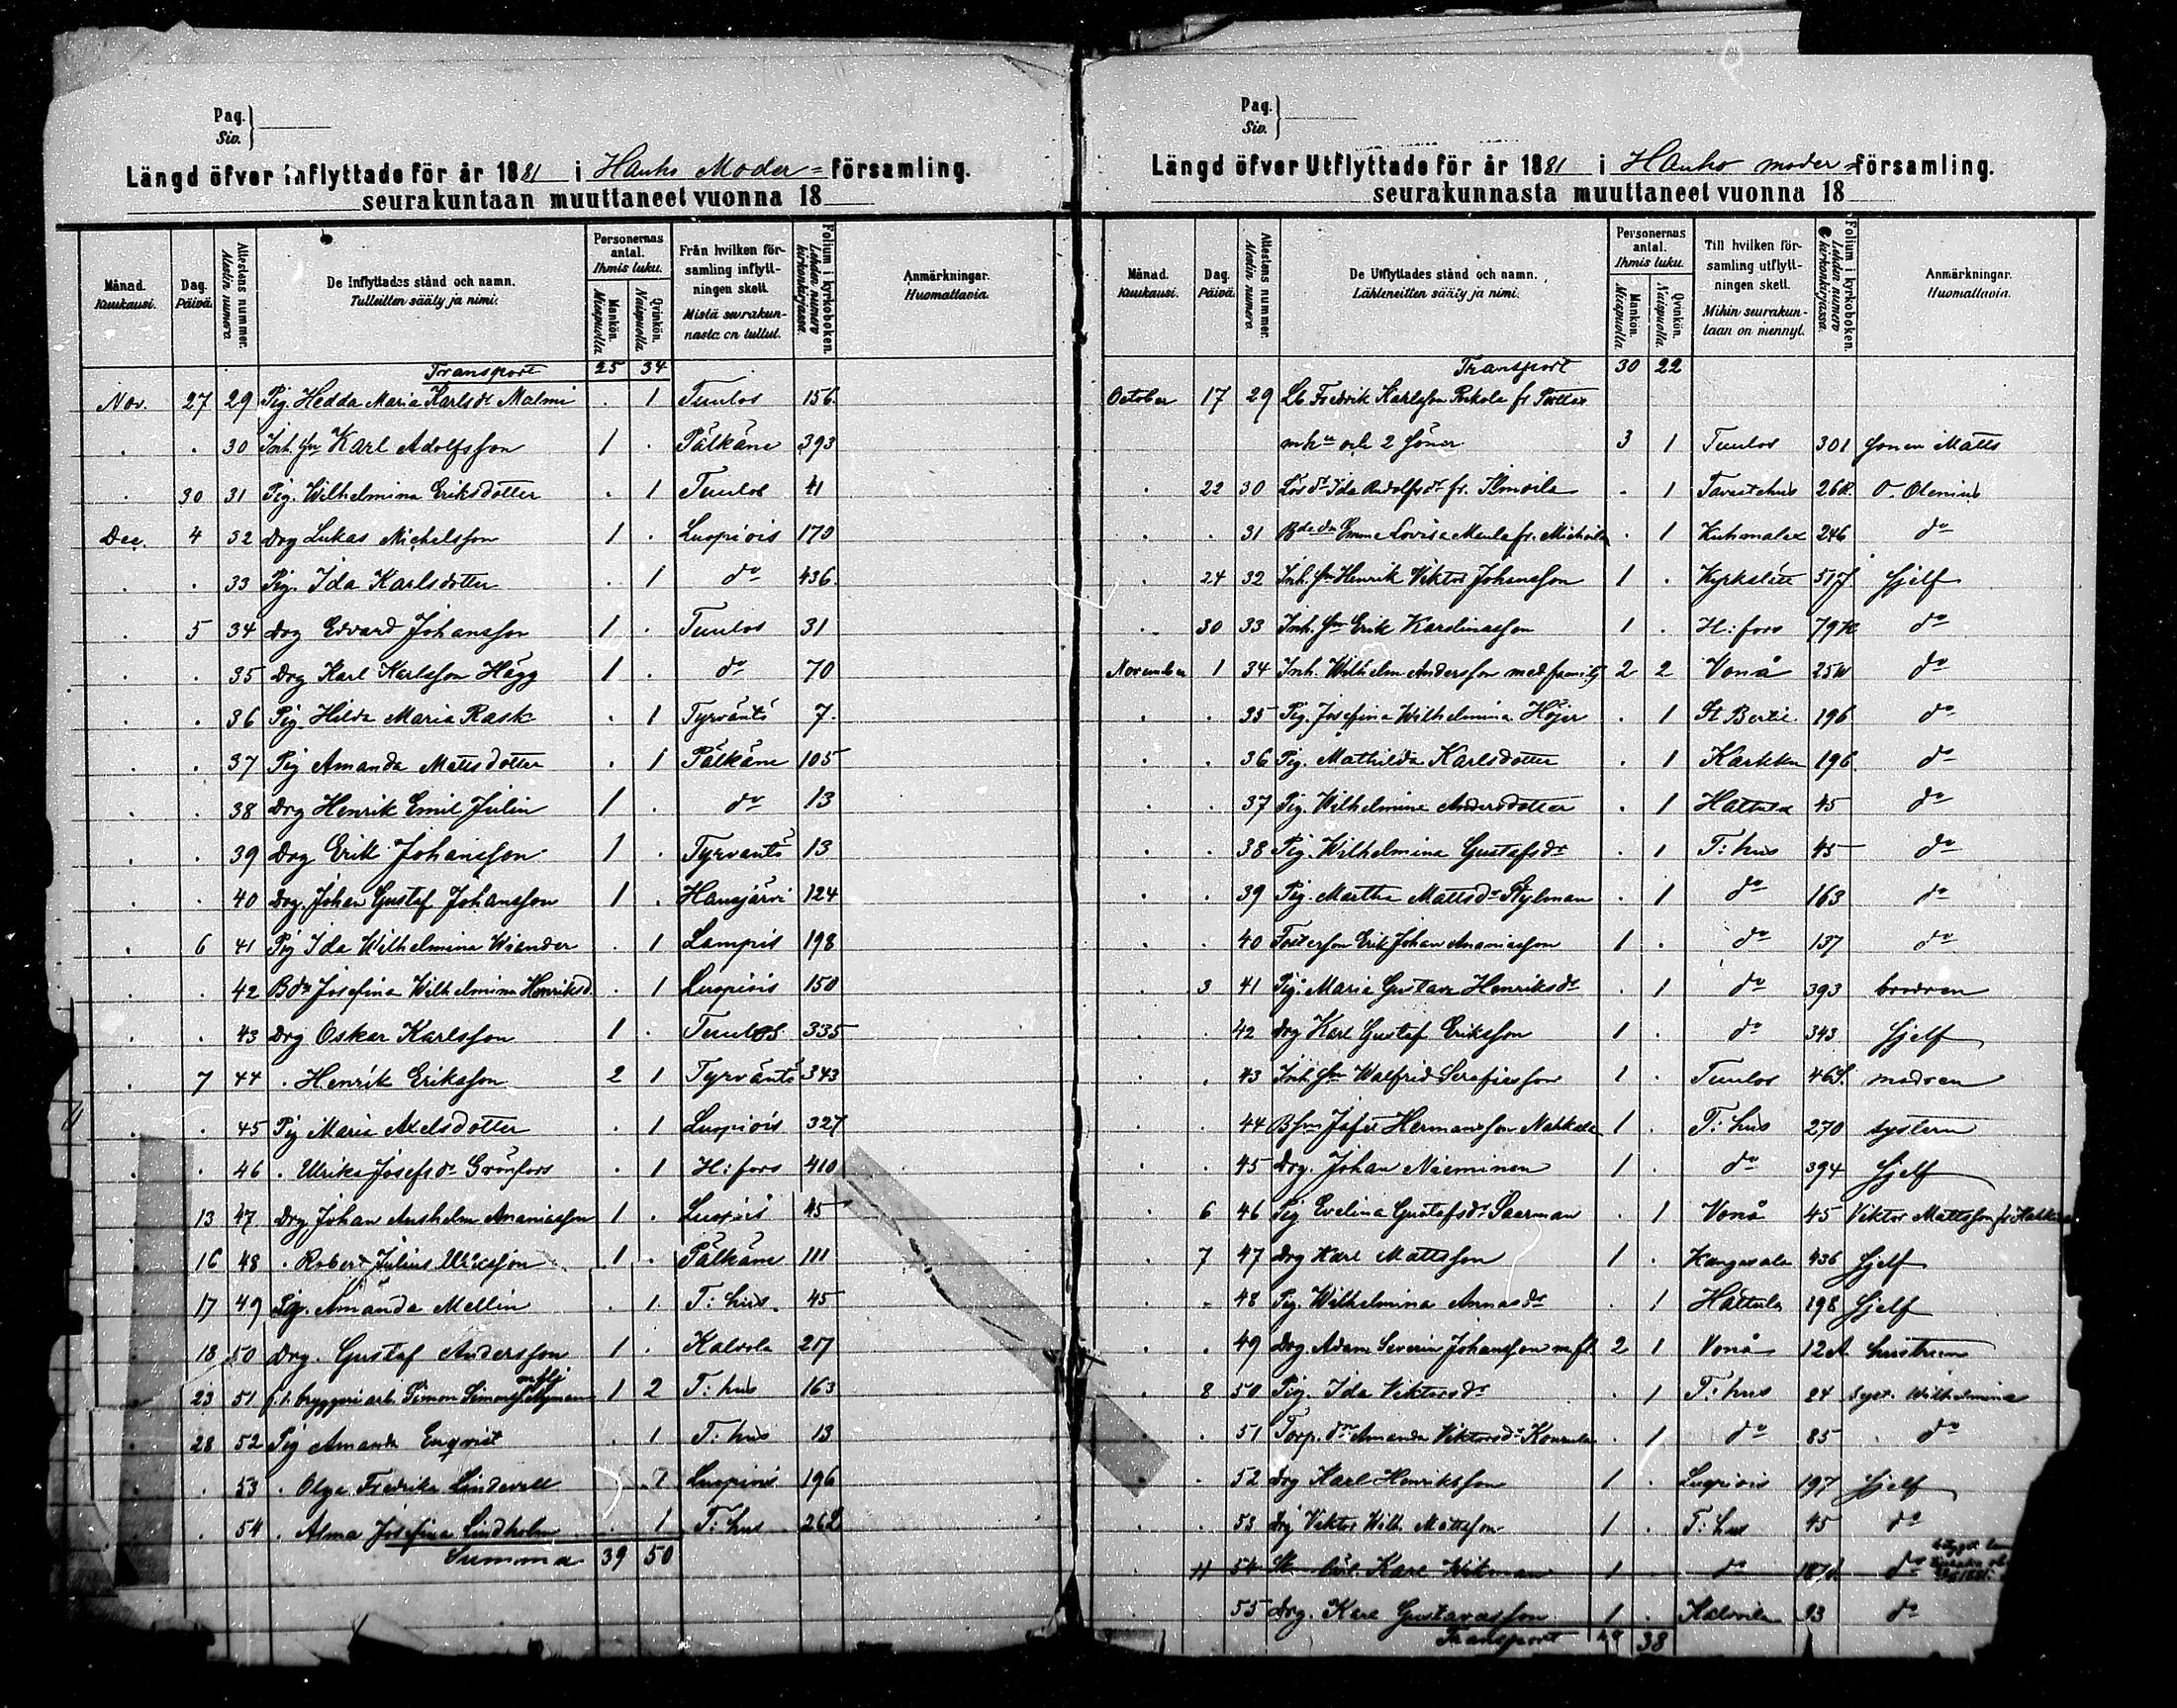 Pag.
Siv.
Längd öfver Inflyttade för år 1881 i Hauho Moder= församling.
seurakuntaan muuttaneet vuonna 18
Månad. Kuukausi.
Dag. Päivä.
Attestens nummer. Mestin numero
De Inflyttades stånd och namn. Tulleitten sääty ja nimi.
Personernas antal. Ihmis luku.
Mankön. Miespuolia
Qvinkön. Naispuolia
Från hvilken församling inflyttningen skett. Mistä seurakunnasta on tullut.
Folium i kyrkoboken. Lehden numero kirkonkirjassa.
Anmärkningar. Huomattavia.
Transport 25 34
Nov. 27 29 Pig. Hedda Maria Karlsdr Malmi . 1 Tuulos 156
. . 30 Inh. son Karl Adolfsson 1 . Pälkäne 393
. 30 31 Pig. Wilhelmina Eriksdotter . 1 Tuulos 41
Dec. 4 32 Drg Lukas Michelsson 1 . Luopiois 170
. . 33 Pig. Ida Karlsdotter . 1 do 436
. 5 34 Drg Edvard Johansson 1 . Tuulos 31
. . 35 Drg Karl Karlsson Hägg 1 . do 70
. . 36 Pig Hilda Maria Rask . 1 Tyrväntö 7
. . 37 Pig Amanda Mattsdotter . 1 Pälkäne 105
. . 38 Drg Henrik Emil Julin 1 . do 13
. . 39 Drg Erik Johansson 1 . Tyrväntö 13
. . 40 Drg. Johan Gustaf Johansson 1 . Hausjärvi 124
. 6 41 Pig Ida Wilhelmina Wiander . 1 Lampis 198
. . 42 Bdr Josefina Wilhelmina Henriksd. . 1 Luopiois 150
. . 43 Drg Oskar Karlsson 1 . Tuulos 335
. 7 44 . Henrik Eriksson 2 1 Tyrväntö 343
. . 45 Pig Maria Axelsdotter . 1 Luopiois 327
. . 46 . Ulrika Josefsdr Grönfors . 1 H:fors 410
13 47 Drg Johan Anshelm Ananiasson 1 . Luopiois 45
16 48 . Robert Julius 1 . Pälkäne 111
17 49 Pig. Amanda Mellin . 1 T:hus 45
18 50 Drg. Gustaf Andersson 1 . Kalvola 217
23 51 f.d. bryggeri arb. Simon Simonss. Nyman mflj 1 2 T:hus 163
28 52 Pig Amanda Enqvist . 1 T:hus 13
. 53 . Olga Fredrika Lindevall . 1 Luopiois 196
. 54 . Alma Josefina Lindholm . 1 T:hus 262
Summa 39 50
Pag.
Siv.
Längd öfver Utflyttade för år 1881 i Hauho moder= församling.
seurakunnasta muuttaneet vuonna 18
Månad. Kuukausi.
Dag. Päivä.
Attestens nummer. Mestin numero
De Utflyttades stånd och namn. Lähteneitten sääty ja nimi.
Personernas antal. Ihmis luku.
Mankön. Miespuolia
Qvinkön. Naispuolia
Till hvilken församling utflyttningen skett. Mihin seurakuntaan on mennyt.
Folium i kyrkoboken. Lehden numero kirkonkirjassa.
Anmärkningar. Huomattavia.
Transport 30 22
October 17 29 Lb Fredrik Karlsson
mhu och 2 söner 3 1 Tuulos 301 sonen Matts
. 22 30 Lösdr Ida Rudolfsdr fr. Ilmoila . 1 Tavastehus 268 O. Olenius
. . 31 Lovisa fr. . 1 Kuhmalax 246 do
. 24 32 Inh. son Henrik Viktor Johansson 1 . Kyrkslätt 517 sjelf
. 30 33 Inh. son Erik Karolinasson 1 . H:fors 79 do
November 1 34 Inh. Wilhelm Andersson med familj 2 2 Vonå 25 do
. . 35 Pig. Josefina Wilhelmina Höjer . 1 St 196 do
. . 36 Pig. Mathilda Karlsdotter . 1 Karkku 196 do
. . 37 Pig. Wilhelmina Andersdotter . 1 Hattula 45 do
. . 38 Pig. Wilhelmina Gustafsdr . 1 T:hus 45 do
. . 39 Pig. Martha Mattsdr Stylman . 1 do 163 do
. . 40 Fosterson Erik Johan Ananiasson 1 . do 137 do
. 3 41 Pig. Maria Gustava Henriksdr . 1 do 393 brodren
. . 42 Drg Karl Gustaf Eriksson 1 . do 343 sjelf
. . 43 Inh. son Walfrid Serafiasson 1 . Tuulos 464 modren
. . 44 Bson Jafet Hermansson Nahkala 1 . T:hus 270 systern
. . 45 Drg. Johan Nieminen 1 . do 394 sjelf
. 6 46 Pig Evelina Gustafsdr Saarman . 1 Vonå 45 Viktor Mattsson fr.
. 7 47 Drg Karl Mattsson 1 . Kangasala 436 sjelf
. . 48 Pig. Wilhelmina Annasdr . 1 Hattula 198 sjelf
. . 49 Drg. Adam Severin Johansson m.fl 2 1 Vonå 12 hustrun
. 8 50 Pig. Ida Viktorsdr . 1 T:hus 24 syst. Wilhelmina
. . 51 Torp. dr Amanda Viktorsdr . 1 do 85 do
. . 52 Drg Karl Henriksson 1 . Luopiois 197 sjelf
. . 53 Drg Viktor Wilh. Mattsson 1 . T:hus 45 do
. 11 54 Karl Wikman 1 . do 187 do
. . 55 Drg. Karl Gustavasson 1 . Kalvola 93 do
Transport 38